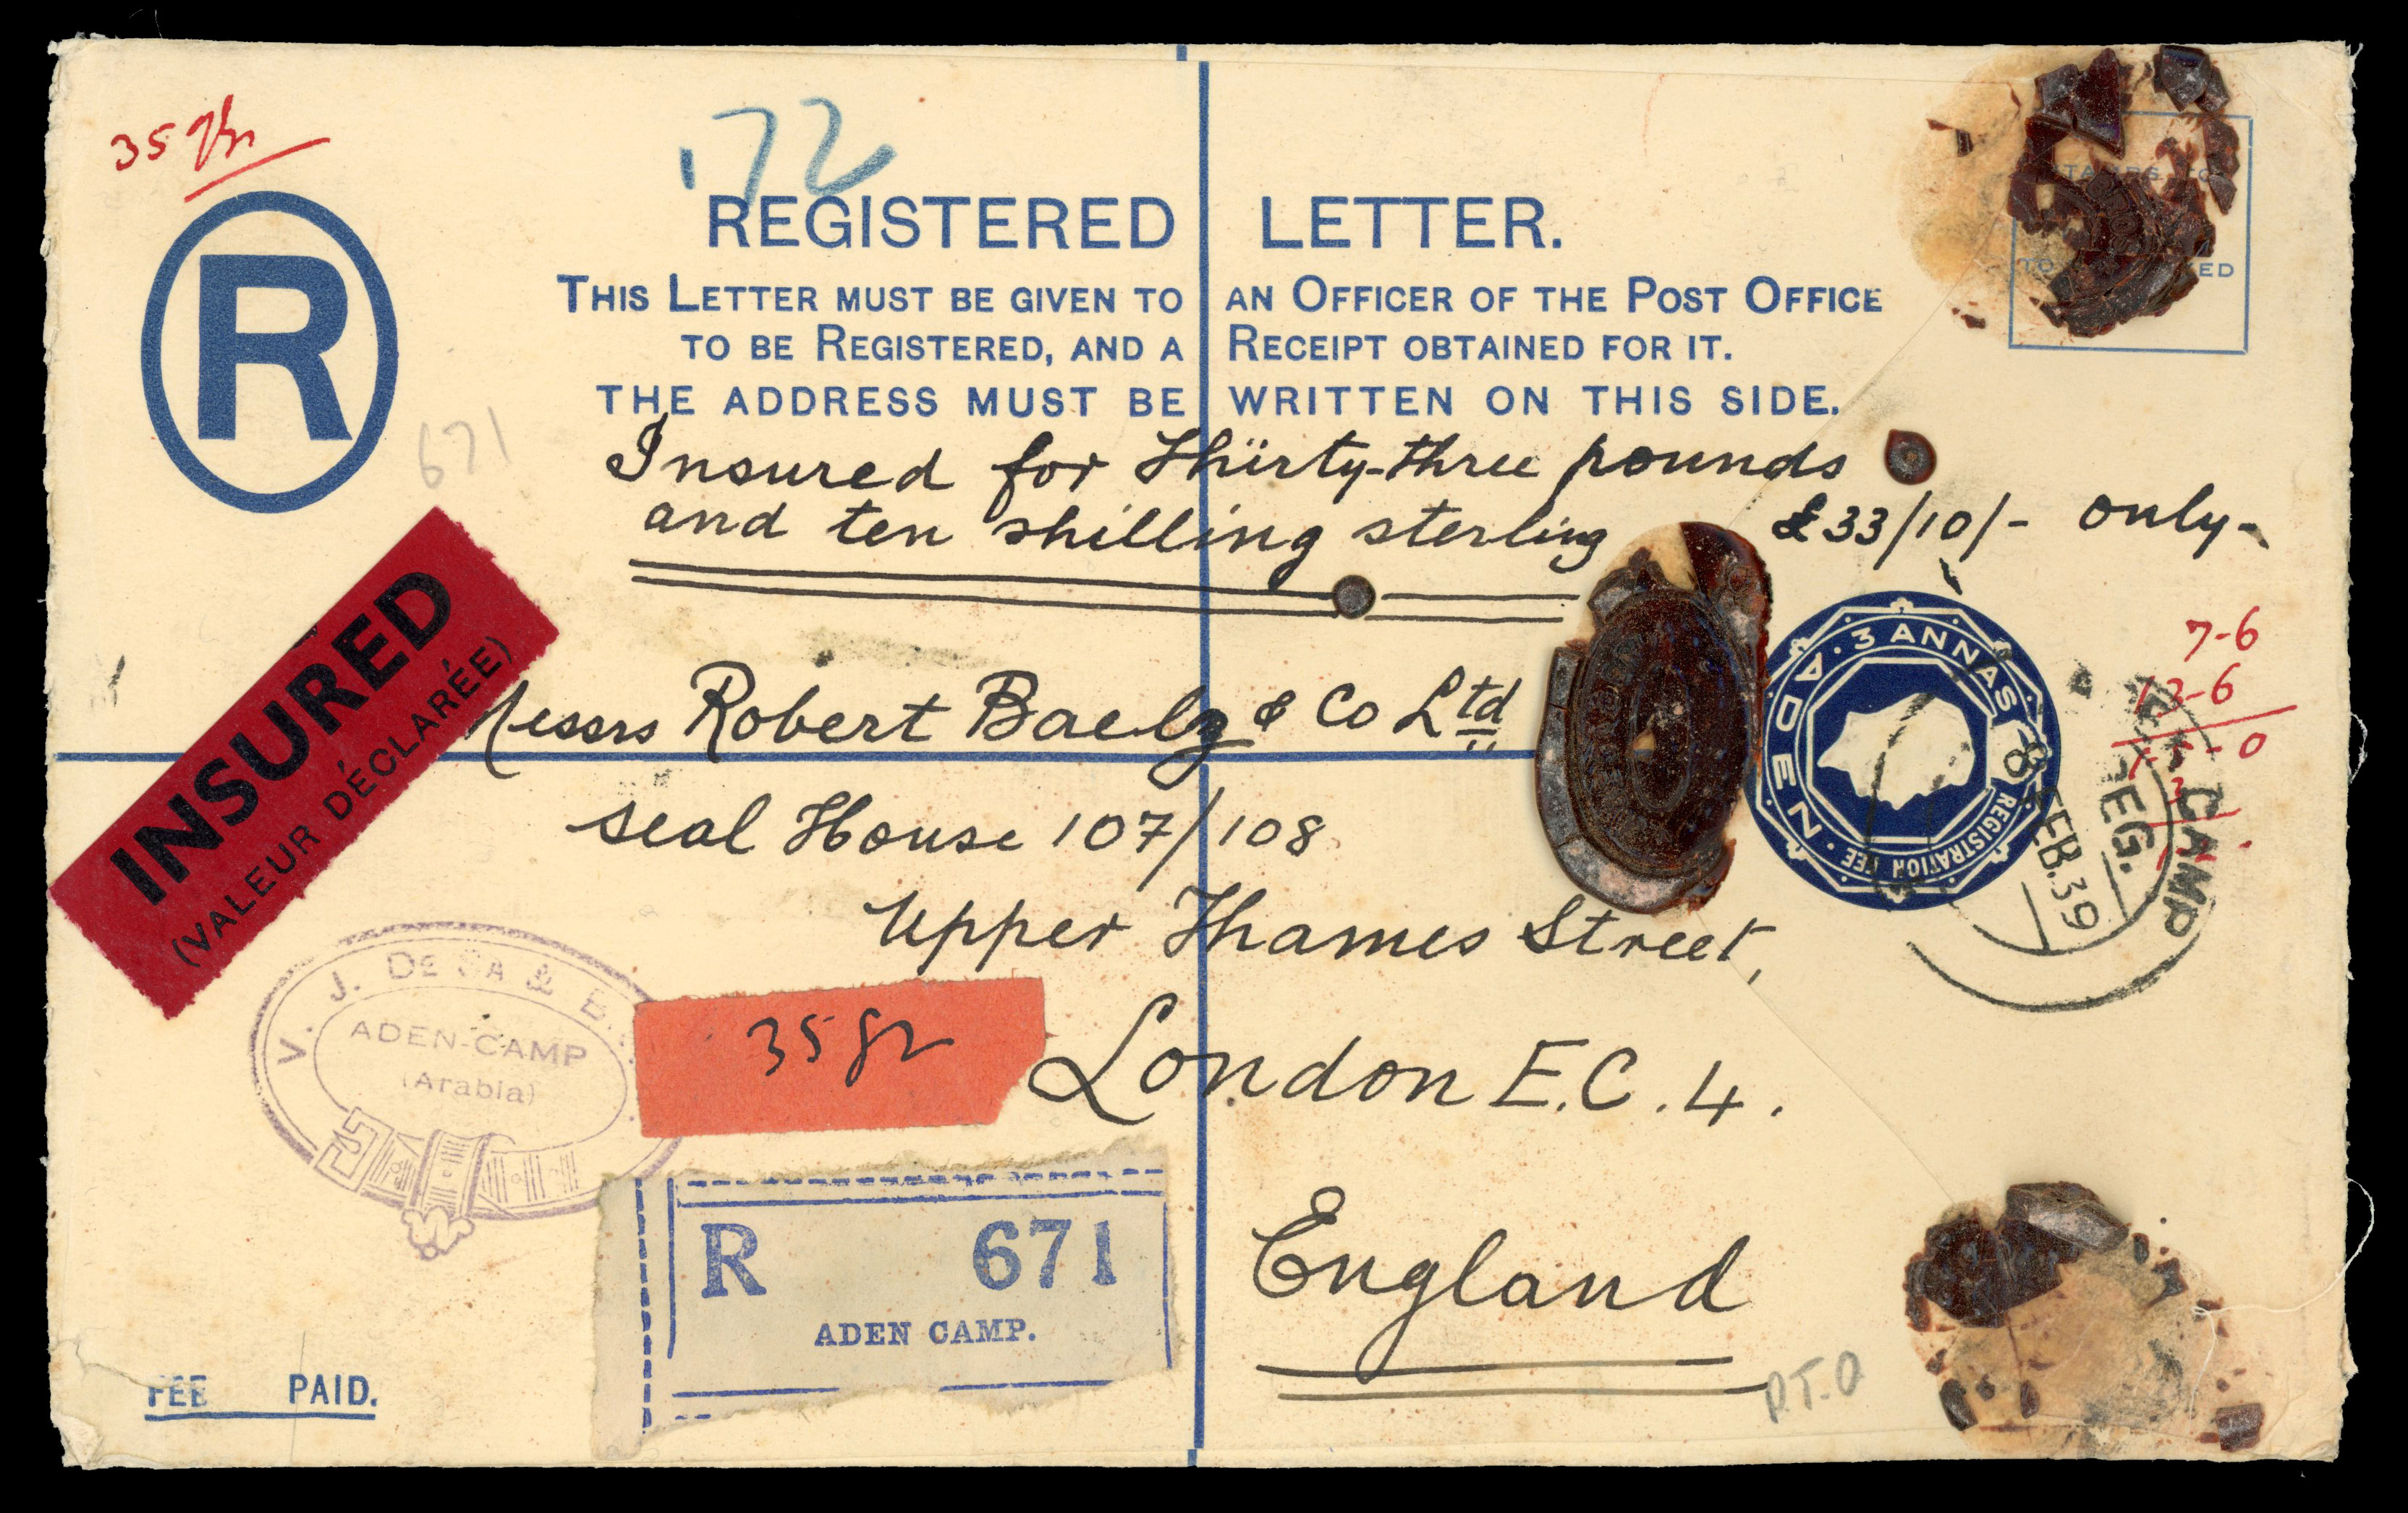 35 gr
172
R
REGISTERED LETTER.
THIS LETTER MUST BE GIVEN TO AN OFFICER OF THE POST OFFICE
TO BE REGISTERED, AND A RECEIPT OBTAINED FOR IT.
THE ADDRESS MUST BE WRITTEN ON THIS SIDE.
671
Insured for Thirty-three pounds
and ten shilling sterling £33/10/- only-
INSURED
(VALEUR DÉCLARÉE)
3 ANNAS
ADEN
REGISTRATION FEE
7-6
12-6
CAMP
REG.
8 FEB.39
Messrs Robert Baelz & Co Ltd
Seal House 107/108
Upper Thames Street,
London E.C.4.
England
V. J. DE SA &
ADEN-CAMP
(Arabia)
35 gr
R 671
ADEN CAMP.
P.T.O
FEE PAID.